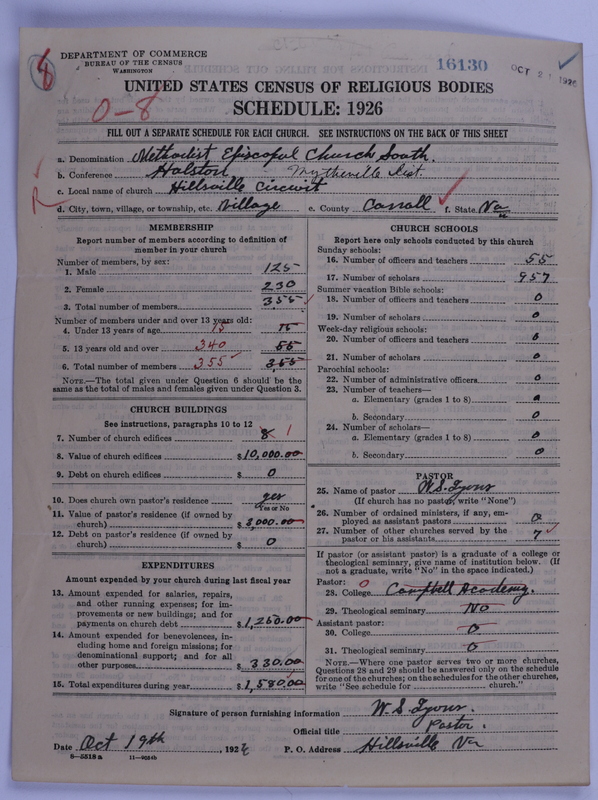 8
DEPARTMENT OF COMMERCE
BUREAU OF THE CENSUS
WASHINGTON
16130
OCT 2 1926
UNITED STATES CENSUS OF RELIGIOUS BODIES
0-8
SCHEDULE: 1926
FILL OUT A SEPARATE SCHEDULE FOR EACH CHURCH. SEE INSTRUCTIONS ON THE BACK OF THIS SHEET
a. Denomination Methodist Episcopal Church South.
b. Conference Holston Wytheville Dist.
c. Local name of church Hillsville Circuit
R
d. City, town, village, or township, etc. Village e. County Carroll f. State Va
MEMBERSHIP
Report number of members according to definition of member in your church
Number of members, by sex:
1. Male 125
2. Female 230
3. Total number of members 355
Number of members under and over 13 years old:
4. Under 13 years of age 15
5. 13 years old and over 340 55
6. Total number of members 355 355
NOTE.—The total given under Question 6 should be the same as the total of males and females given under Question 3.
CHURCH BUILDINGS
See instructions, paragraphs 10 to 12
7. Number of church edifices 8 1
8. Value of church edifices $10,000.00
9. Debt on church edifices $ 0
10. Does church own pastor's residence yes
Yes or No
11. Value of pastor's residence (if owned by church) $3,000.00
12. Debt on pastor's residence (if owned by church) $ 0
EXPENDITURES
Amount expended by your church during last fiscal year
13. Amount expended for salaries, repairs, and other running expenses; for improvements or new buildings; and for payments on church debt $1,250.00
14. Amount expended for benevolences, including home and foreign missions; for denominational support; and for all other purposes $ 330.00
15. Total expenditures during year $1,580.00
CHURCH SCHOOLS
Report here only schools conducted by this church
Sunday schools:
16. Number of officers and teachers 55
17. Number of scholars 957
Summer vacation Bible schools:
18. Number of officers and teachers 0
19. Number of scholars 0
Week-day religious schools:
20. Number of officers and teachers 0
21. Number of scholars 0
Parochial schools:
22. Number of administrative officers 0
23. Number of teachers—
a. Elementary (grades 1 to 8) 0
b. Secondary 0
24. Number of scholars—
a. Elementary (grades 1 to 8) 0
b. Secondary 0
PASTOR
25. Name of pastor W. S. Lyons
(If church has no pastor, write "None")
26. Number of ordained ministers, if any, employed as assistant pastors 0
27. Number of other churches served by the pastor or his assistants 7
If pastor (or assistant pastor) is a graduate of a college or theological seminary, give name of institution below. (If not a graduate, write "No" in the space indicated.)
Pastor: 0
28. College Campbell Academy.
29. Theological seminary No
Assistant pastor:
30. College 0
31. Theological seminary 0
NOTE.—Where one pastor serves two or more churches, Questions 28 and 29 should be answered only on the schedule for one of the churches; on the schedules for the other churches, write "See schedule for church."
Signature of person furnishing information W. S. Lyons.
Official title Pastor.
Date Oct 19th, 1926 P. O. Address Hillsville Va
8-5518a 11-9024b